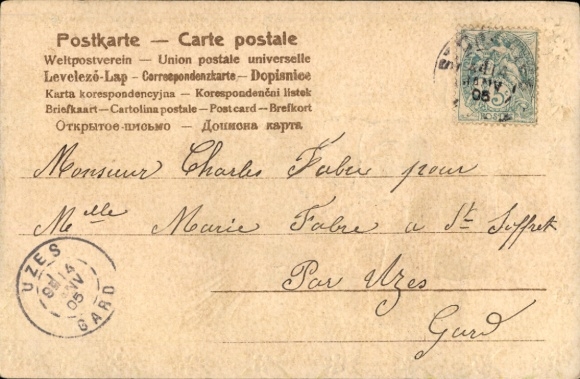 Postkarte — Carte postale
Weltpostverein — Union postale universelle
Levelező-Lap — Correspondenzkarte — Dopisnice
Karta korespondencyjna — Korespondenční lístek
Briefkaart — Cartolina postale — Postcard — Brefkort
Открытое письмо — Дописна карта
Monsieur Charles Fabre pour
Melle Marie Fabre à St Siffret
Par Uzès
Gard
UZES
14
JANV
05
GARD
JANV
05
5
POSTES